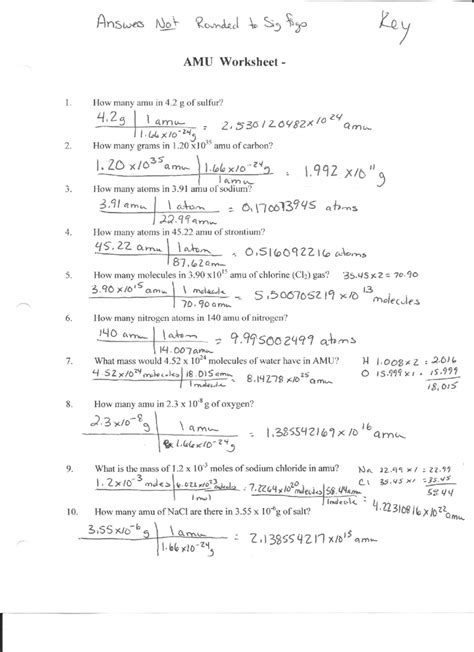 Answers Not Rounded to Sig Figs Key
AMU Worksheet -
1. How many amu in 4.2 g of sulfur?
4.2g | 1 amu
1.66 x10⁻²⁴g = 2.530120482 x10²⁴ amu
2. How many grams in 1.20 x10³⁵ amu of carbon?
1.20 x10³⁵ amu | 1.66 x10⁻²⁴g
1 amu = 1.992 x10¹¹ g
3. How many atoms in 3.91 amu of sodium?
3.91 amu | 1 atom
22.99 amu = 0.170073945 atoms
4. How many atoms in 45.22 amu of strontium?
45.22 amu | 1 atom
87.62 amu = 0.516092216 atoms
5. How many molecules in 3.90 x10¹⁵ amu of chlorine (Cl₂) gas? 35.45 x 2 = 70.90
3.90 x10¹⁵ amu | 1 molecule
70.90 amu = 5.500705219 x10¹³ molecules
6. How many nitrogen atoms in 140 amu of nitrogen?
140 amu | 1 atom
14.007 amu = 9.995002499 atoms
7. What mass would 4.52 x 10²⁴ molecules of water have in AMU? H 1.008 x 2 = 2.016
4.52 x10²⁴ molecules | 18.015 amu O 15.999 x 1 = 15.999
1 molecule = 8.14278 x10²⁵ amu 18.015
8. How many amu in 2.3 x 10⁻⁸ g of oxygen?
2.3 x10⁻⁸ g | 1 amu
1.66 x10⁻²⁴g = 1.385542169 x10¹⁶ amu
9. What is the mass of 1.2 x 10⁻³ moles of sodium chloride in amu? Na 22.99 x 1 = 22.99
1.2 x10⁻³ moles | 6.022 x10²³ molecules = 7.2264 x10²⁰ molecules | 58.44 amu Cl 35.45 x 1 = 35.45
1 mol 1 molecule 58.44
= 4.22310816 x10²² amu
10. How many amu of NaCl are there in 3.55 x 10⁻⁶ g of salt?
3.55 x10⁻⁶ g | 1 amu
1.66 x10⁻²⁴ g = 2.138554217 x10¹⁸ amu